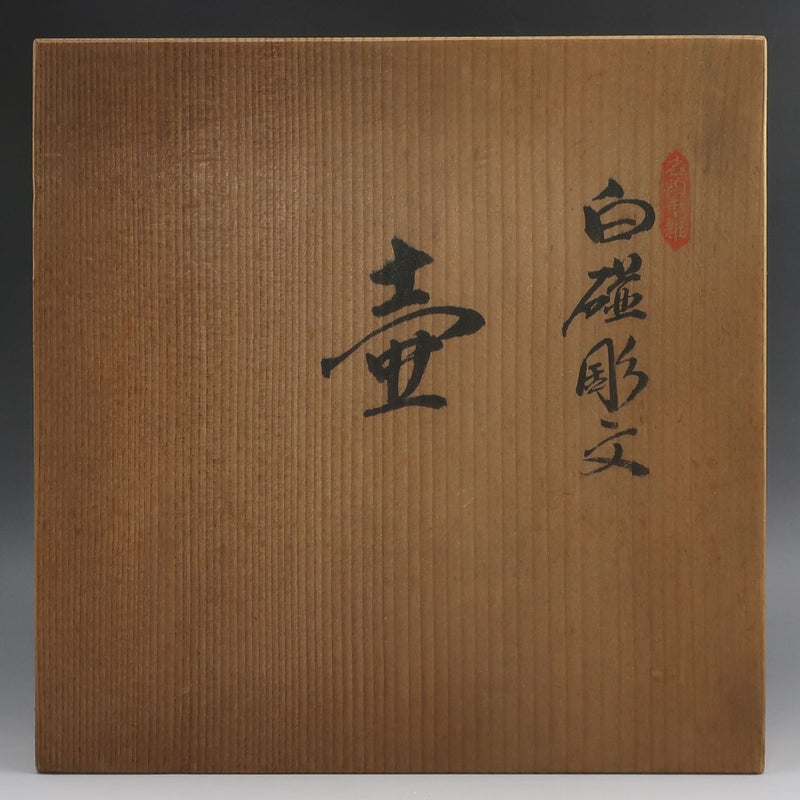 白磁彫文
壷